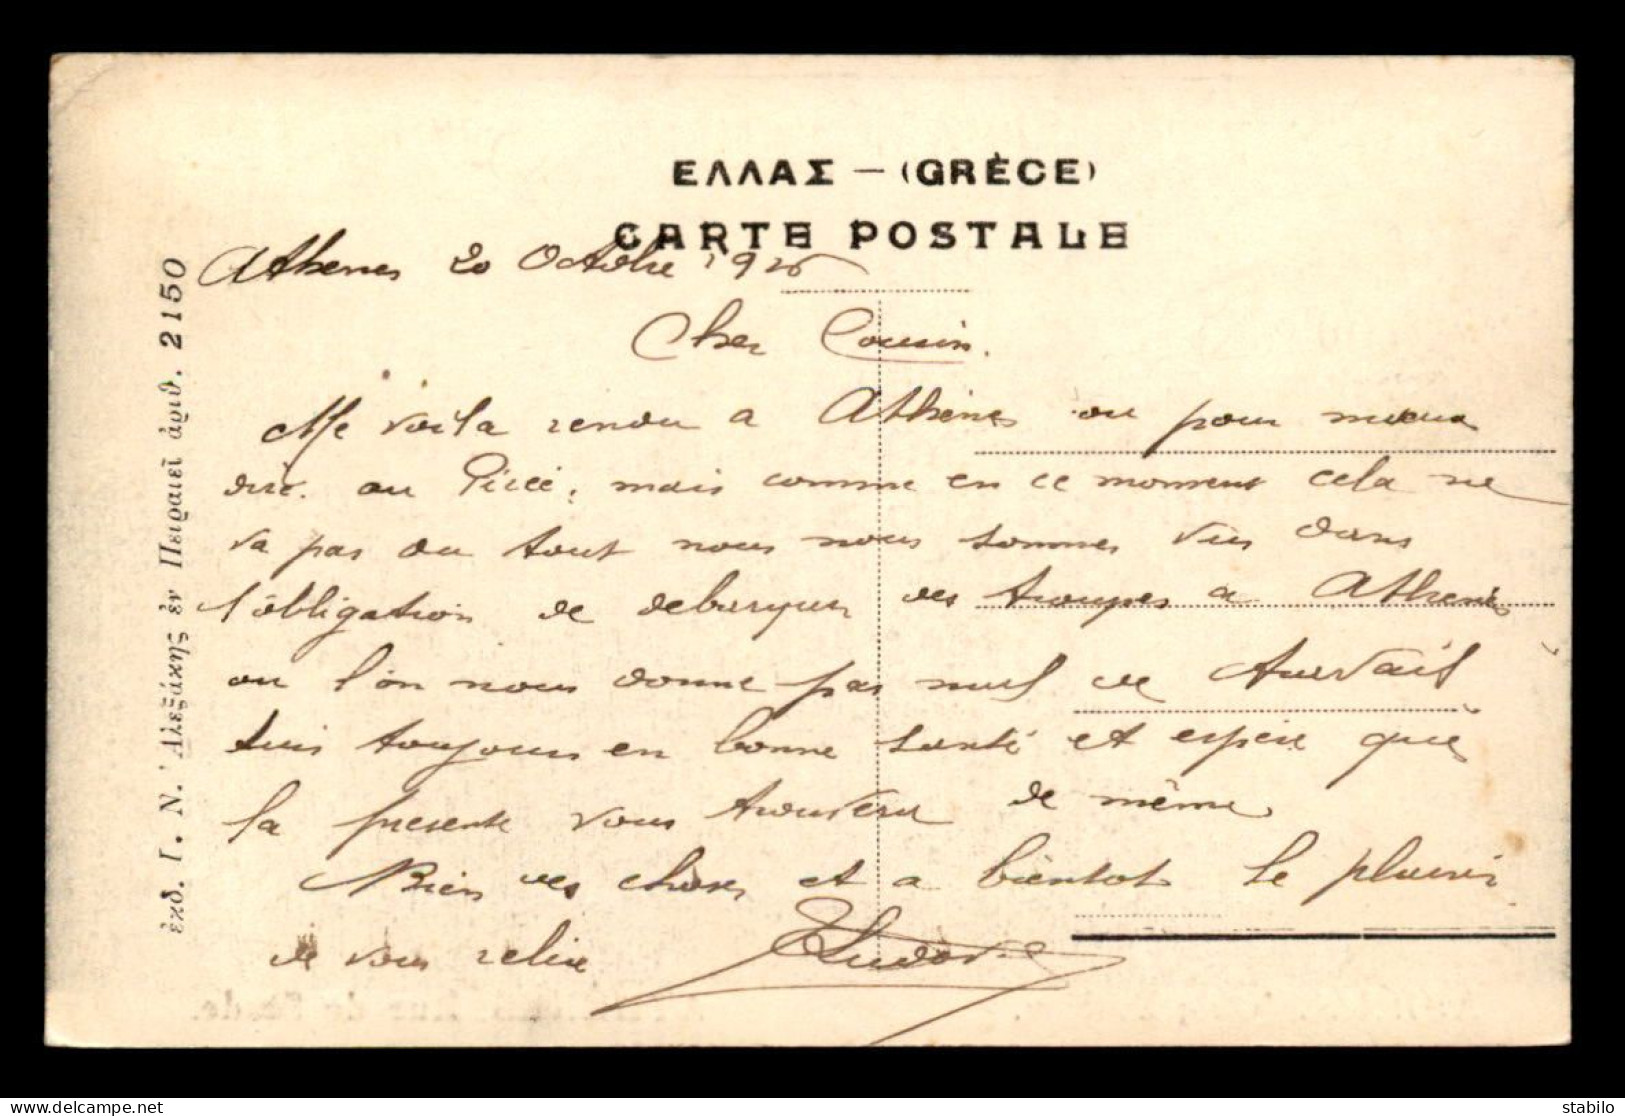 ΕΛΛΑΣ — (GRÈCE)
CARTE POSTALE
Athenes 20 Octobre 1926
Cher Cousin.
Me voila rendu a Athènes ou pour mieux
dire. au Pirée, mais comme en ce moment cela ne
va pas du tout nous nous sommes vus dans
l'obligation de debarquer des troupes a Athenes
ou l'on nous donne pas mal de travail
suis toujours en bonne santé et espère que
la presente vous trouvera de même
Bien des choses et a bientot le plaisir
de vous relire
ἐκδ. Ι. Ν. Ἀλεξάκης ἐν Πειραιεῖ ἀριθ. 2150
stabilo